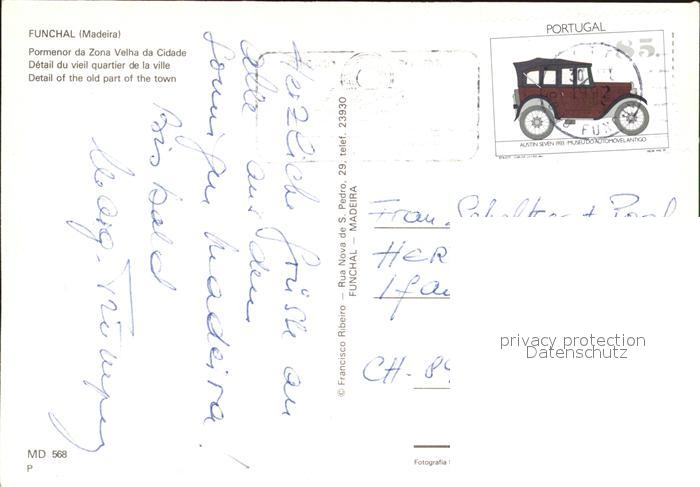 FUNCHAL (Madeira)
Pormenor da Zona Velha da Cidade
Détail du vieil quartier de la ville
Detail of the old part of the town
Herzliche Grüsse an
alle aus dem
sonnigen Madeira!
Bis bald
MD 568
P
© Francisco Ribeiro — Rua Nova de S. Pedro, 29, telef. 23930
FUNCHAL — MADEIRA
PORTUGAL
85.
AUSTIN SEVEN 1933 MUSEU DO AUTOMOVEL ANTIGO
HER
CH-
Fotografia
privacy protection
Datenschutz